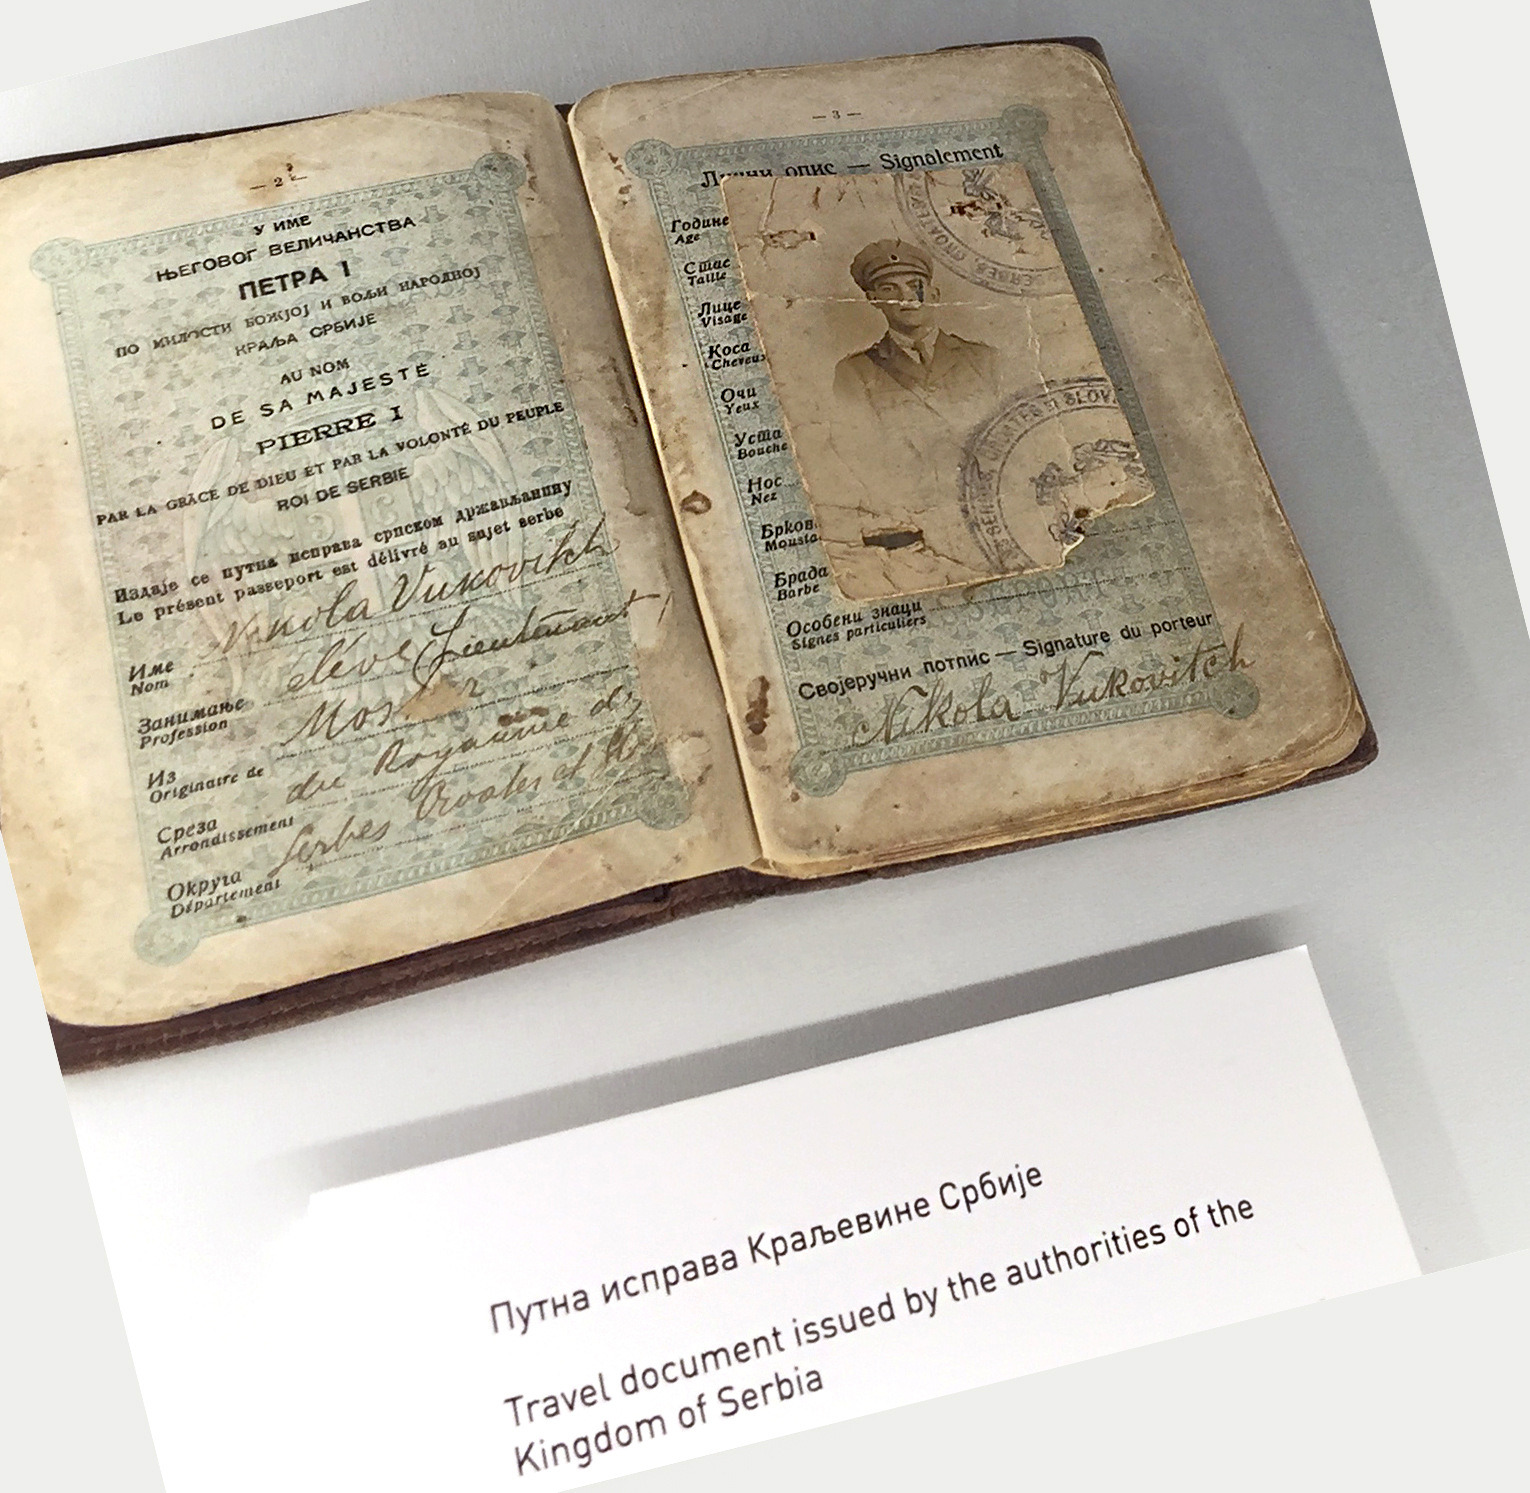 — 2 —
У ИМЕ
ЊЕГОВОГ ВЕЛИЧАНСТВА
ПЕТРА I
ПО МИЛОСТИ БОЖЈОЈ И ВОЉИ НАРОДНОЈ
КРАЉА СРБИЈЕ
AU NOM
DE SA MAJESTÉ
PIERRE I
PAR LA GRÂCE DE DIEU ET PAR LA VOLONTÉ DU PEUPLE
ROI DE SERBIE
Издаје се путна исправа српском држављанину
Le présent passeport est délivré au sujet serbe
Nikola Vukovitch
Име
Nom
élève Lieutenant
Занимање
Profession
Из
Originaire de
du Royaume
Среза
Arrondissement
Serbes Croates et
Округа
Département
— 3 —
Лични опис — Signalement
Године
Age
Стас
Taille
Лице
Visage
Коса
Cheveux
Очи
Yeux
Уста
Bouche
Нос
Nez
Бркови
Mousta
Брада
Barbe
Особени знаци
Signes particuliers
Својеручни потпис — Signature du porteur
Nikola Vukovitch
SERBES, CROATES
Путна исправа Краљевине Србије
Travel document issued by the authorities of the
Kingdom of Serbia